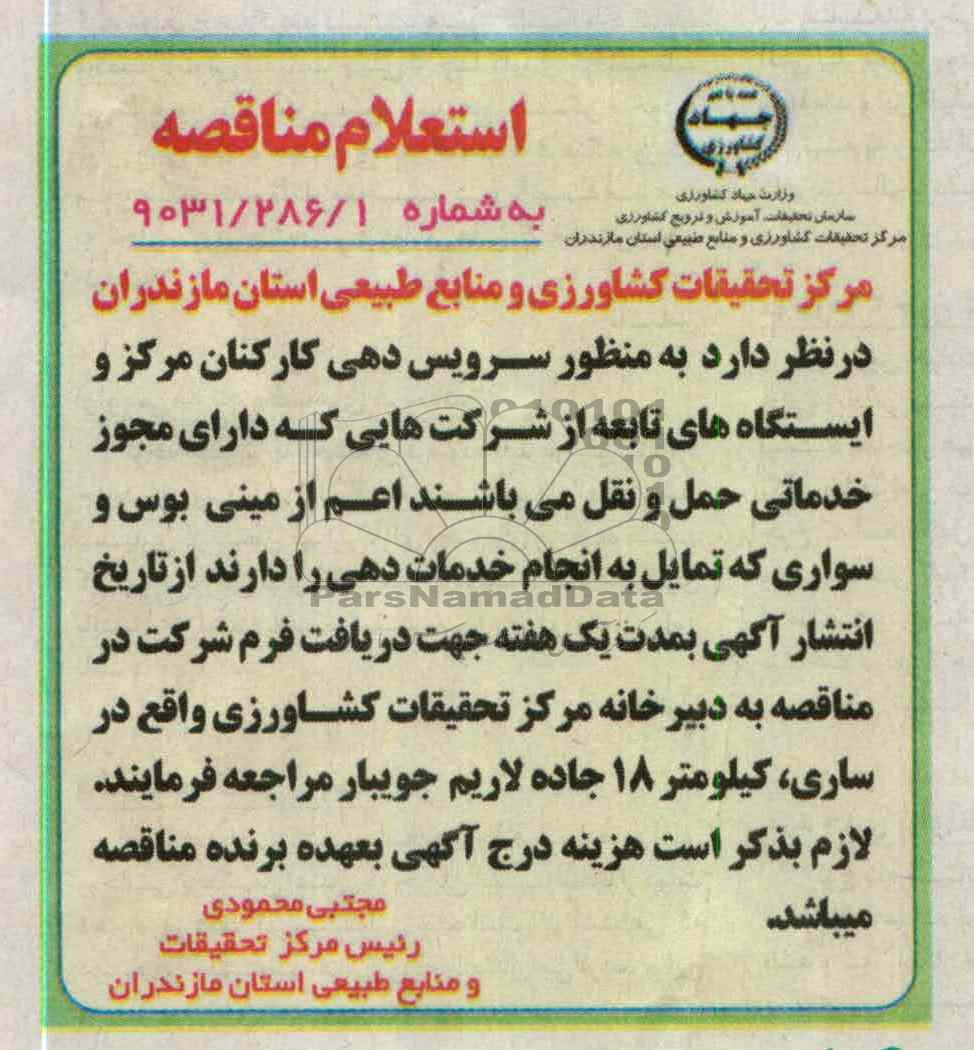 جهاد
کشاورزی
وزارت جهاد کشاورزی
سازمان تحقیقات، آموزش و ترویج کشاورزی
مرکز تحقیقات کشاورزی و منابع طبیعی استان مازندران
استعلام مناقصه
به شماره ۹۰۳۱/۲۸۶/۱
مرکز تحقیقات کشاورزی و منابع طبیعی استان مازندران
در نظر دارد به منظور سرویس دهی کارکنان مرکز و
ایستگاه های تابعه از شرکت هایی که دارای مجوز
خدماتی حمل و نقل می باشند اعم از مینی بوس و
سواری که تمایل به انجام خدمات دهی را دارند از تاریخ
انتشار آگهی بمدت یک هفته جهت دریافت فرم شرکت در
مناقصه به دبیرخانه مرکز تحقیقات کشاورزی واقع در
ساری، کیلومتر ۱۸ جاده لاریم جویبار مراجعه فرمایند.
لازم بذکر است هزینه درج آگهی بعهده برنده مناقصه
میباشد.
مجتبی محمودی
رئیس مرکز تحقیقات
و منابع طبیعی استان مازندران
ParsNamadData